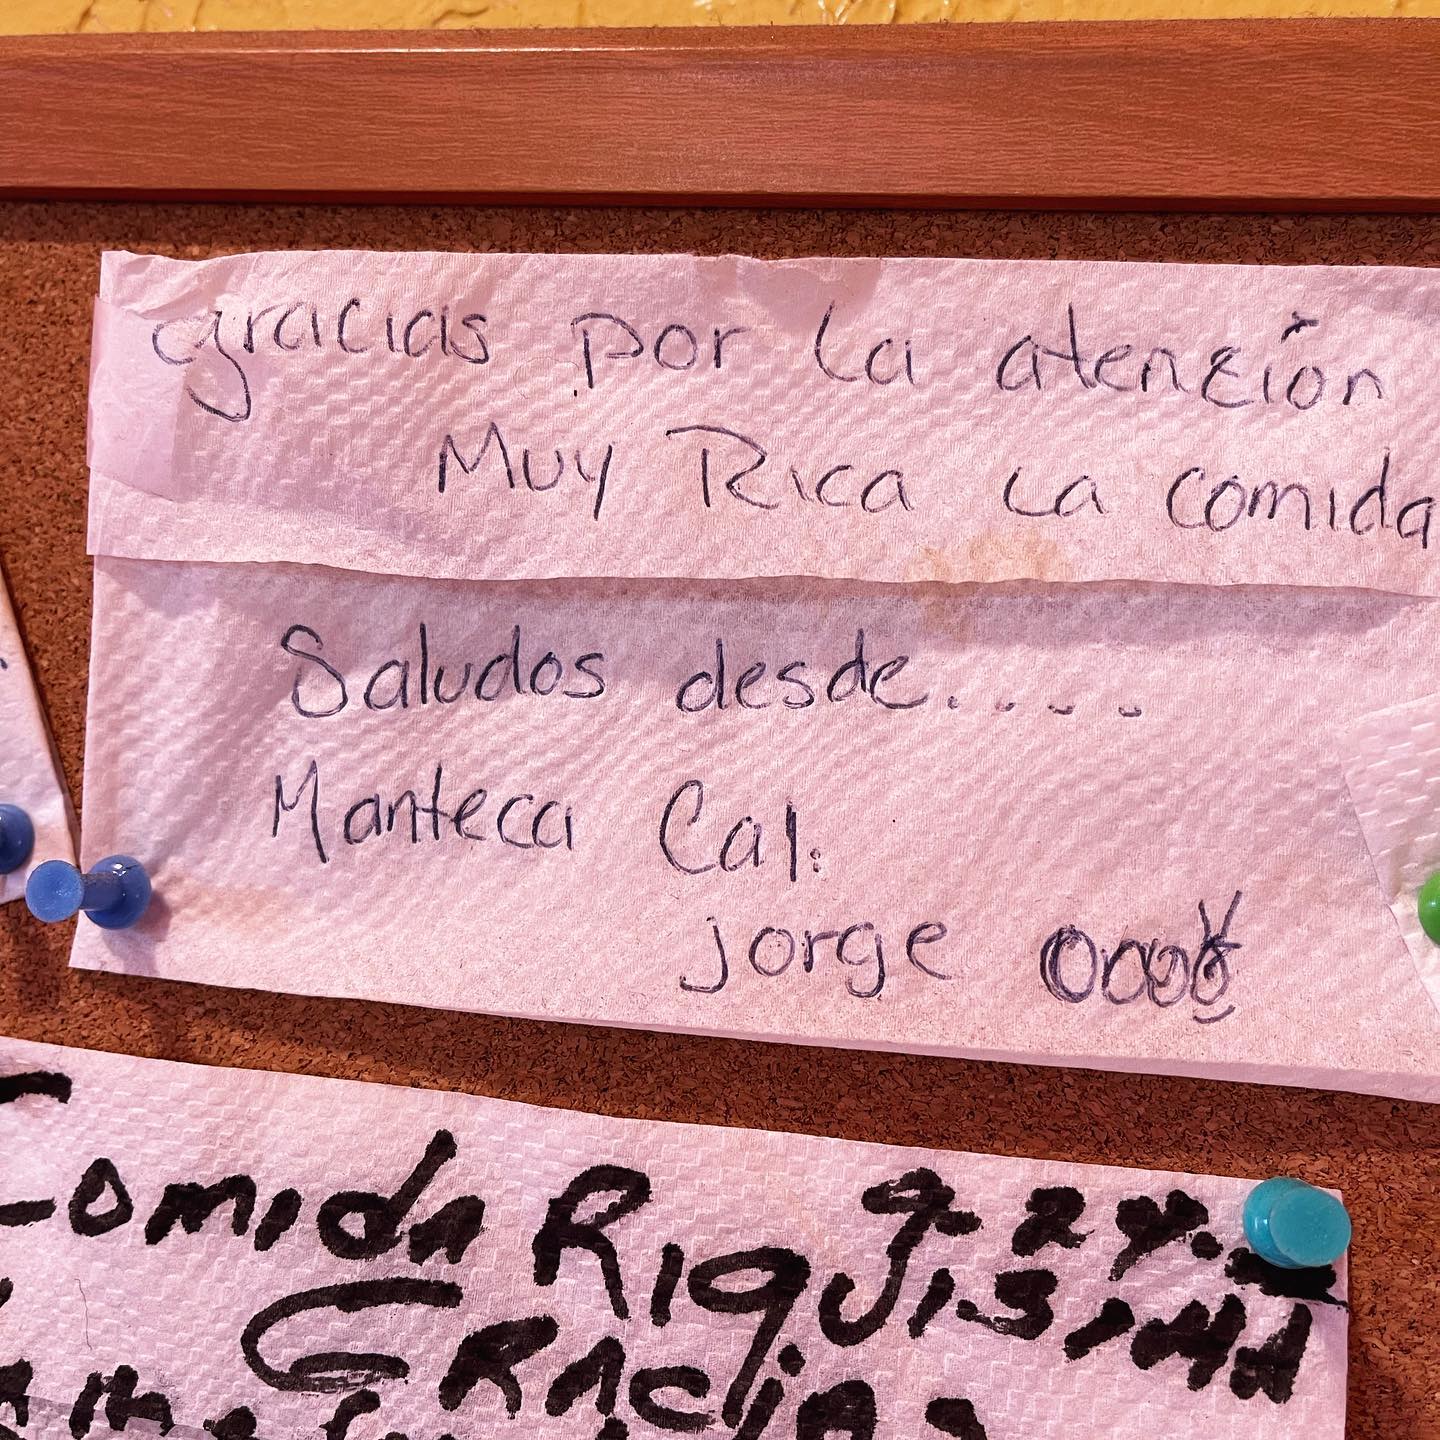 gracias por la atención
Muy Rica La comida
Saludos desde....
Manteca Cal.
jorge
9-24-
Comida Riquisima
Gracias